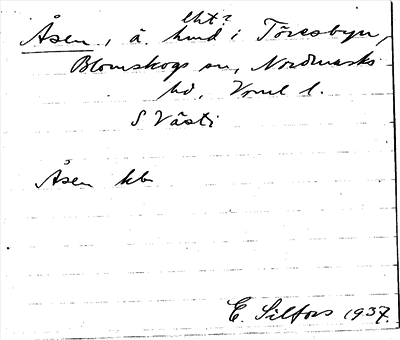 eht?
Åsen, ä. hmd i Töresbyn,
Blomskogs sn, Nordmarks
hd, Vrml l.
S Västi
Åsen kb
E. Silfors 1937.